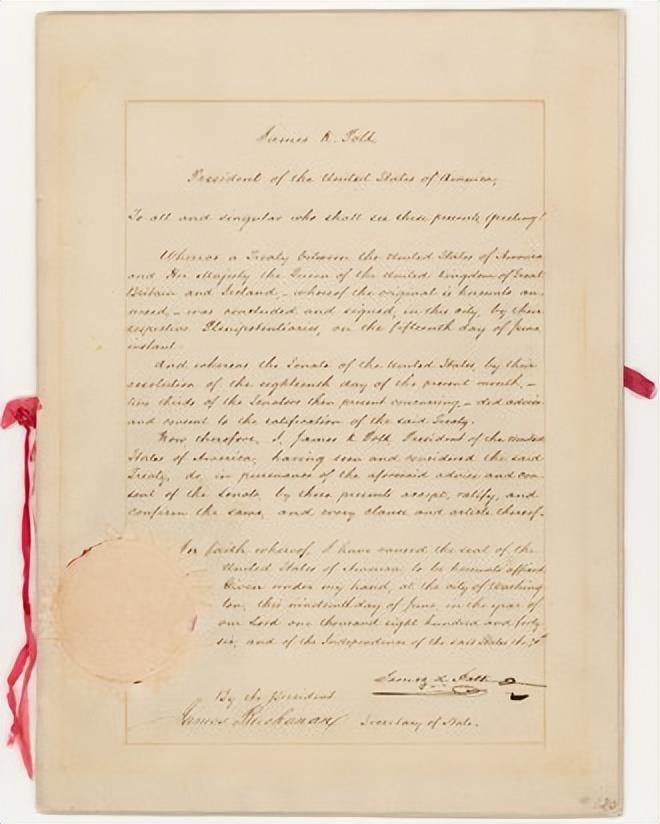 James K. Polk,
President of the United States of America,
To all and singular who shall see these presents, Greeting!
Whereas a Treaty between the United States of America
and Her Majesty the Queen of the United Kingdom of Great
Britain and Ireland, - whereof the original is hereunto an-
nexed, - was concluded and signed, in this city, by their
respective Plenipotentiaries, on the fifteenth day of June
instant.
And whereas the Senate of the United States, by their
resolution of the eighteenth day of the present month, -
two thirds of the Senators then present concurring, - did advise
and consent to the ratification of the said Treaty.
Now, therefore, I, James K. Polk President of the United
States of America, having seen and considered the said
Treaty, do, in pursuance of the aforesaid advice and con-
sent of the Senate, by these presents accept, ratify, and
confirm the same, and every clause and article thereof.
In faith whereof, I have caused the seal of the
United States of American, to be hereunto affixed
Given under my hand, at the city of Washing
ton, this nineteenth day of June, in the year of
our Lord one thousand eight hundred and forty
six, and of the Independence of the said States the 70th
James K. Polk
By the President
James Buchanan Secretary of State.